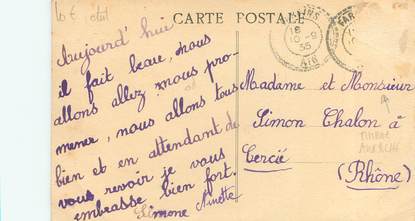 CARTE POSTALE
Aujourd'hui
il fait beau, nous
allons allez nous pro-
mener, nous allons tous
bien et en attendant de
vous revoir je vous
embrasse bien fort.
Simone Ninette
18
10-9
35
AIN
Madame et Monsieur
Simon Chalon à
Cercié
(Rhône)